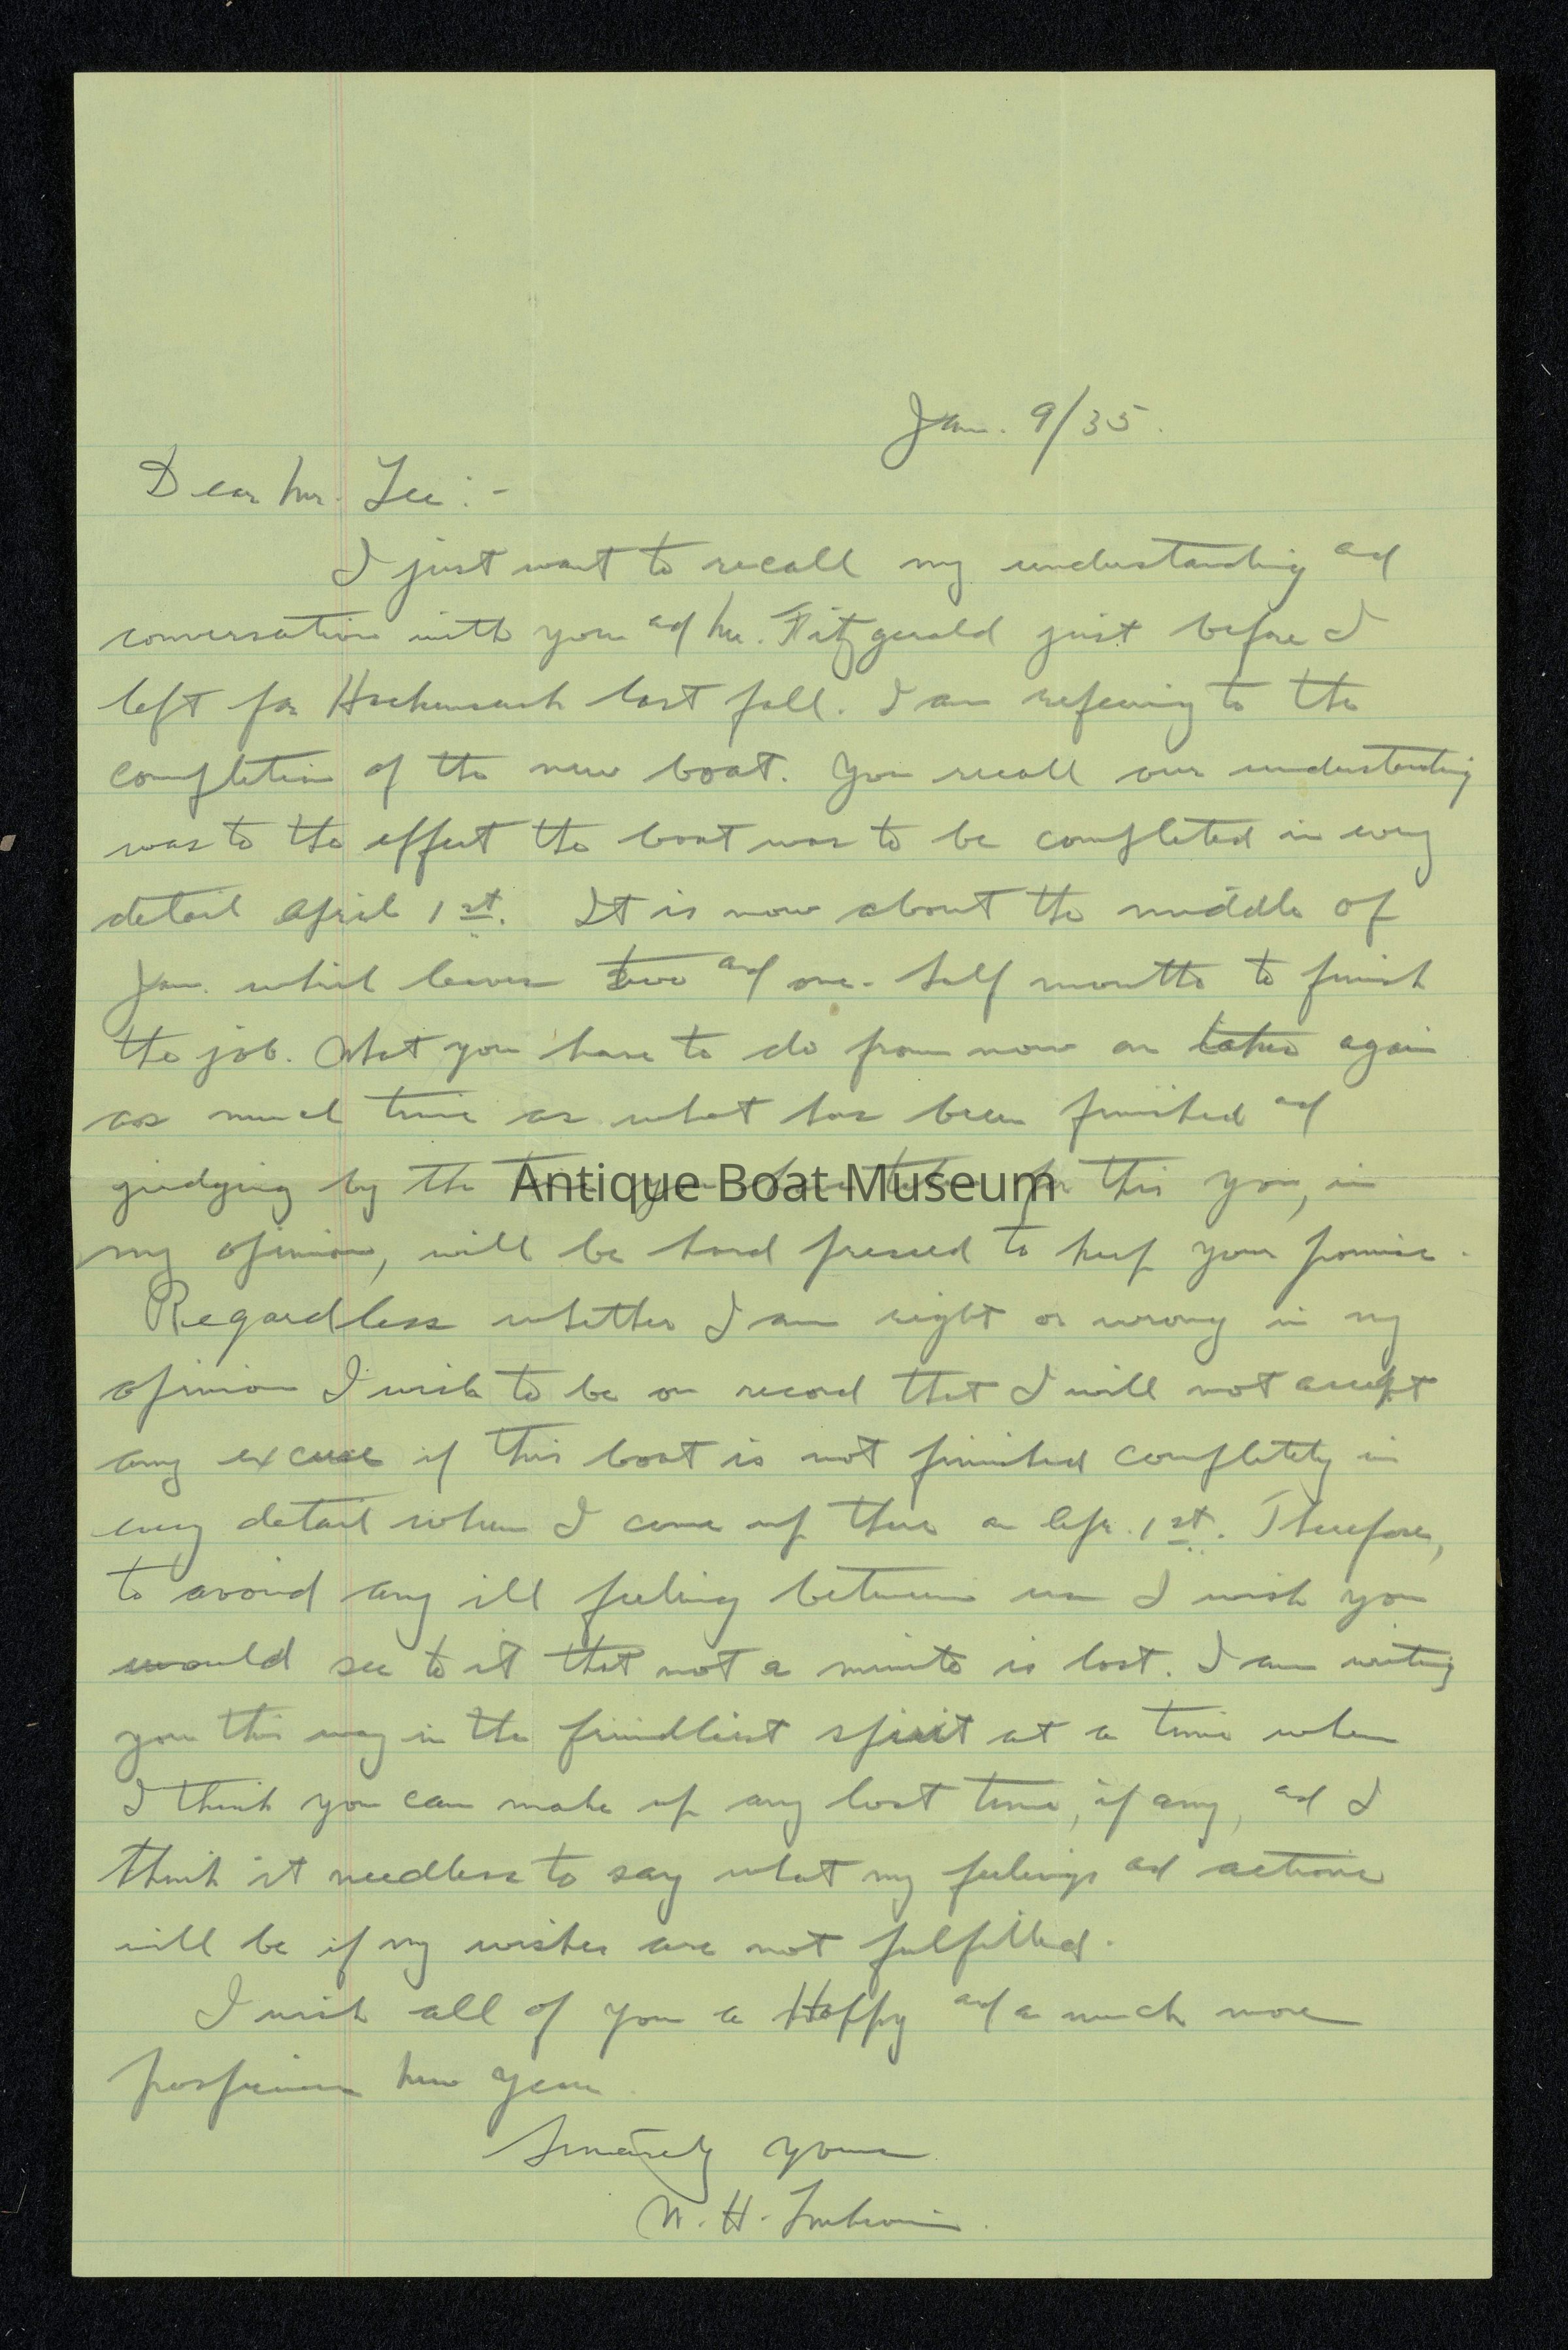 Jan. 9/35.
Dear Mr. Lee:-
I just want to recall my understanding and
conversation with you and Mr. Fitzgerald just before I
left for Hackensack last fall. I am refering to the
completion of the new boat. You recall our understanding
was to the effect the boat was to be completed in every
detail April 1st. It is now about the middle of
Jan. which leaves two and one-half months to finish
the job. What you have to do from now on takes again
as much time as what has been finished and
gudging by the time you have taken for this you, in
my opinion, will be hard pressed to keep your promise.
Regardless whether I am right or wrong in my
opinion I wish to be on record that I will not accept
any excuse if this boat is not finished completely in
every detail when I come up there on Apr. 1st. Therefore,
to avoid any ill feeling between us I wish you
would see to it that not a minute is lost. I am writing
you this way in the friendliest spirit at a time when
I think you can make up any lost time, if any, and I
think it needless to say what my feelings and actions
will be if my wishes are not fulfilled.
I wish all of you a Happy and a much more
prosperous New Year.
Sincerely yours
H.
Antique Boat Museum